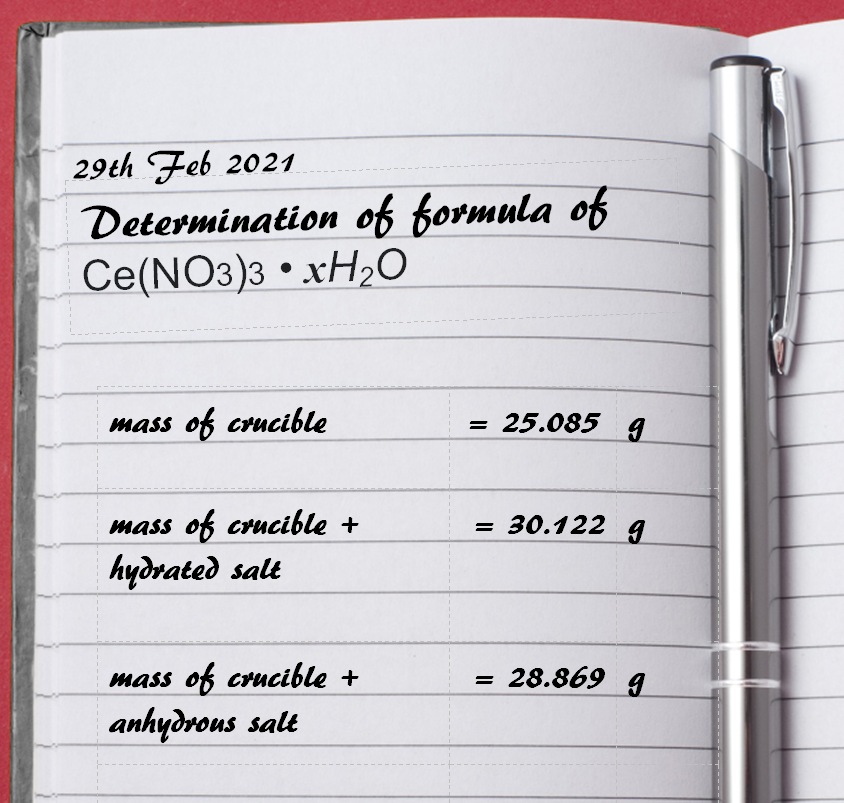 29th Feb 2021
Determination of formula of
Ce(NO3)3 • xH₂O
mass of crucible = 25.085 g
mass of crucible + = 30.122 g
hydrated salt
mass of crucible + = 28.869 g
anhydrous salt